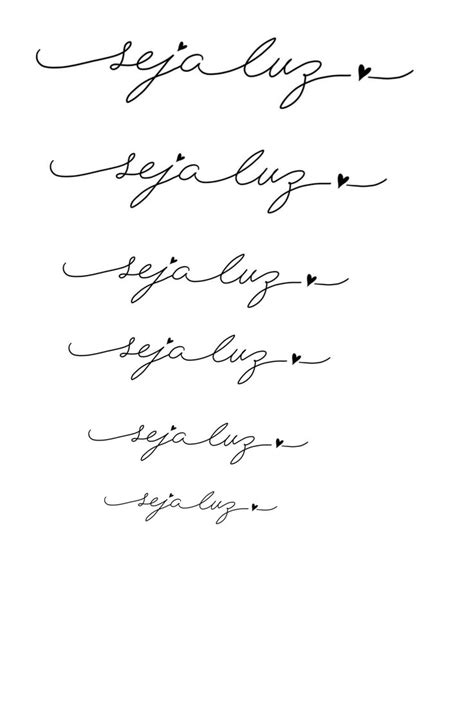 seja luz
seja luz
seja luz
seja luz
seja luz
seja luz